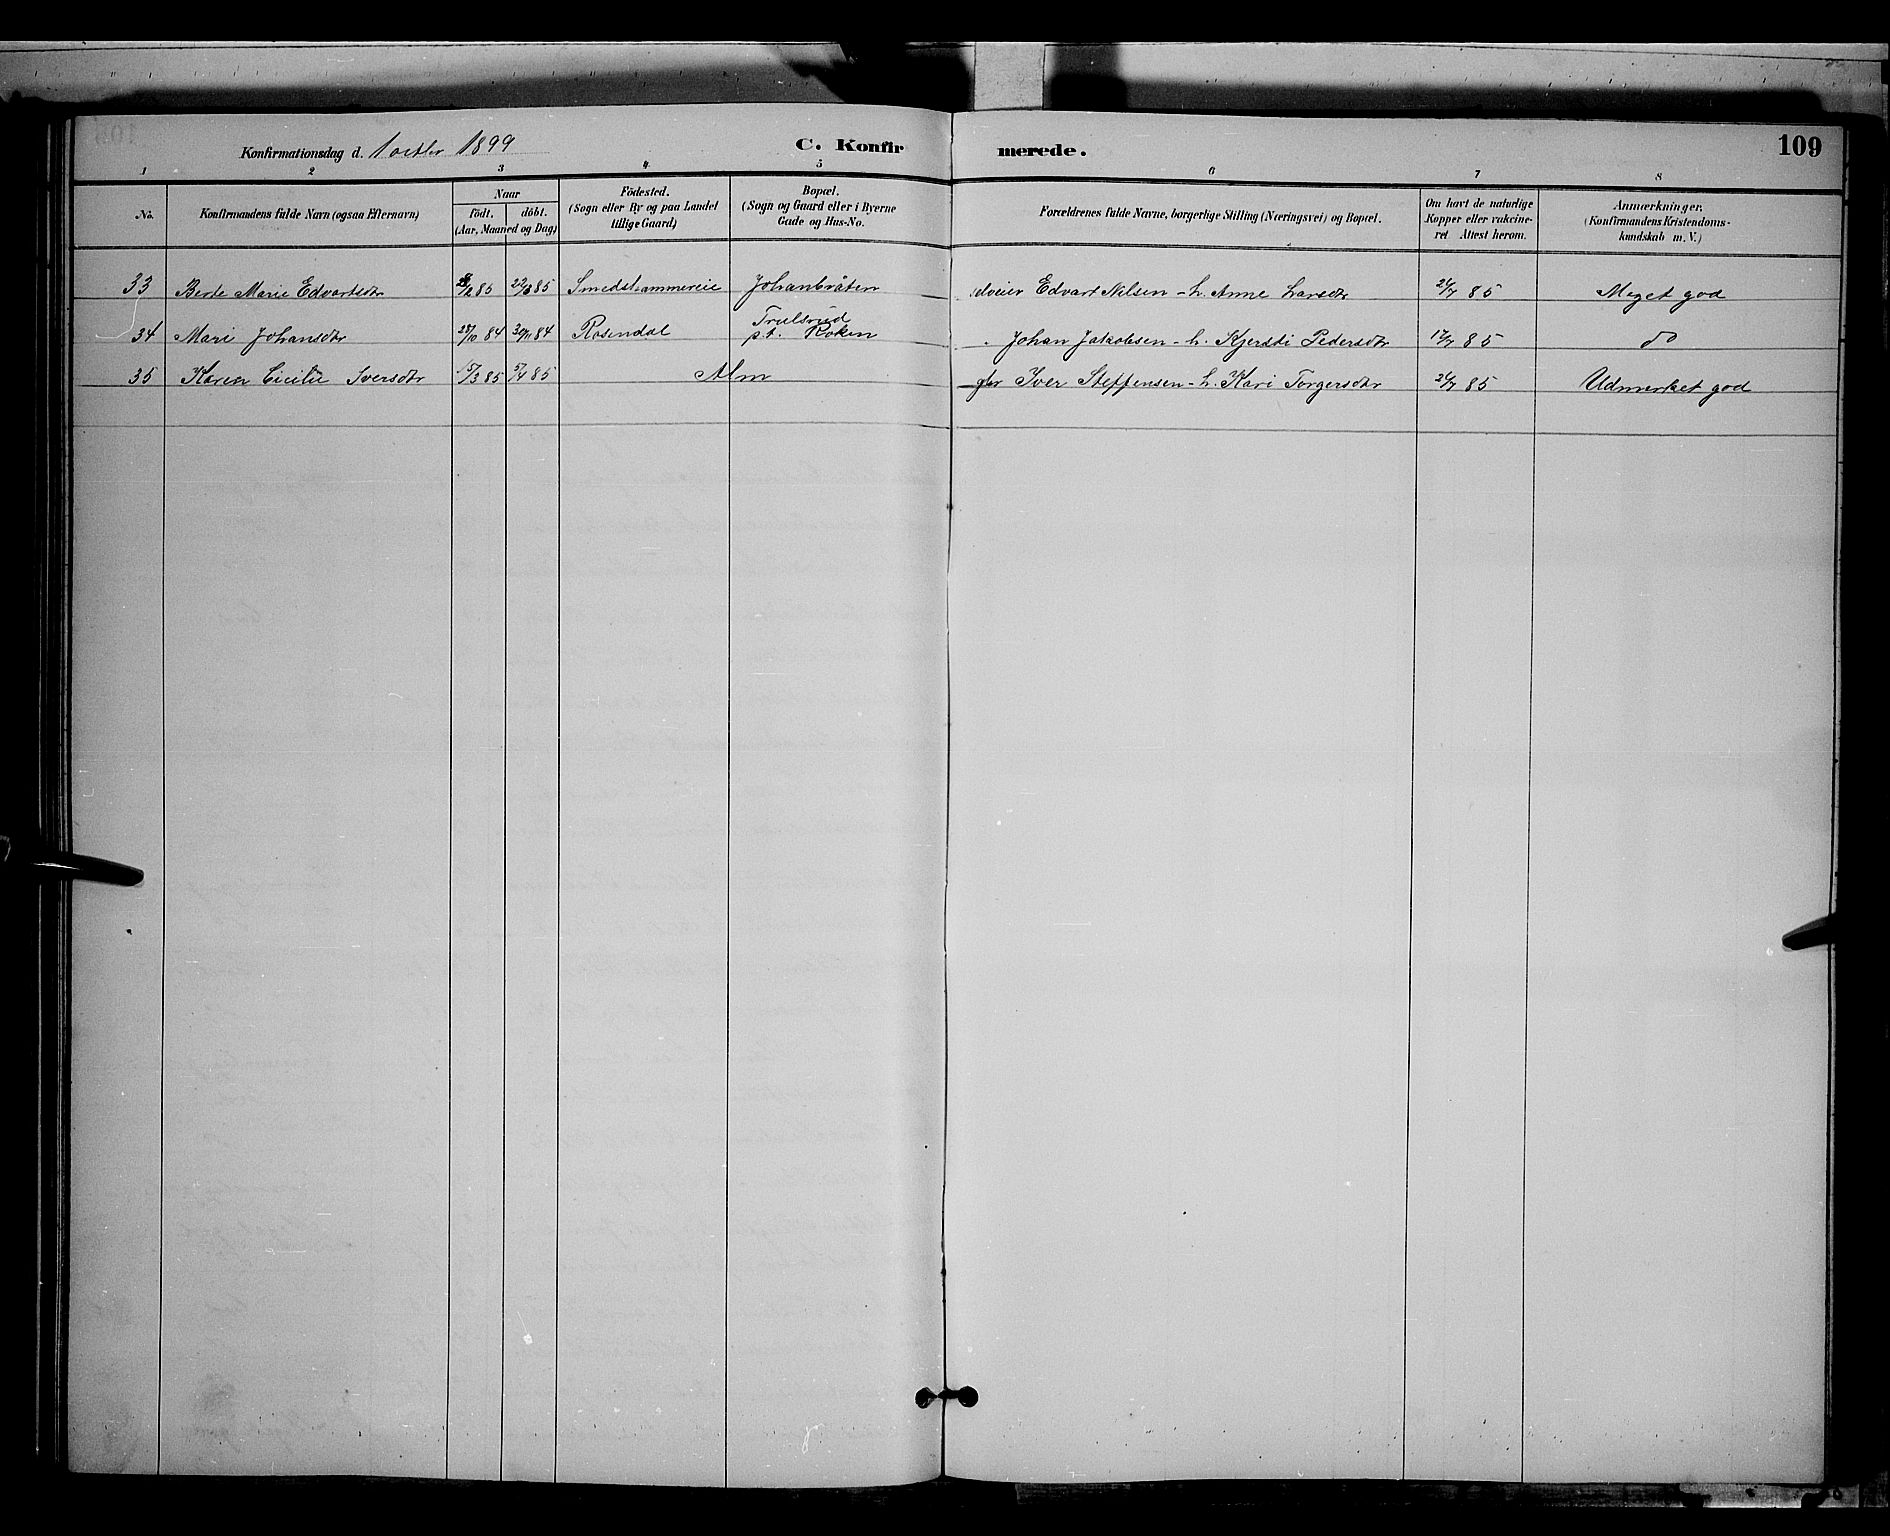 109
Konfirmationsdag d. 1 octbr 1899 C. Konfirmerede.
1 2 3 4 5 6 7 8
No.
Konfirmandens fulde Navn (ogsaa Efternavn)
Naar
födt. döbt.
(Aar, Maaned og Dag)
Födested.
(Sogn eller By og paa Landet
tillige Gaard)
Bopæl.
(Sogn og Gaard eller i Byerne
Gade og Hus-No.
Forældrenes fulde Navne, borgerlige Stilling (Næringsvei) og Bopæl.
Om havt de naturlige
Kopper eller vakcine-
ret Attest herom.
Anmærkninger,
(Konfirmandens Kristendoms-
kundskab m. V.)
33 Berte Marie Edvartsdtr 85 22/3 85 Smedshammereie Johanbråten Edvart Nilsen - h. Anne Larsdtr 24/7 85 Meget god
34 Mari Johansdtr 28/10 84 30/11 84 Rosendal Trulsrud
p.t. Röken Johan Jakobsen - h. Kjersti Pedersdtr 17/7 85 do
35 Karen Cicilie Iversdtr 15/3 85 5/4 85 Alm Iver Steffensen - h. Kari Torgersdtr 24/7 85 Udmerket god